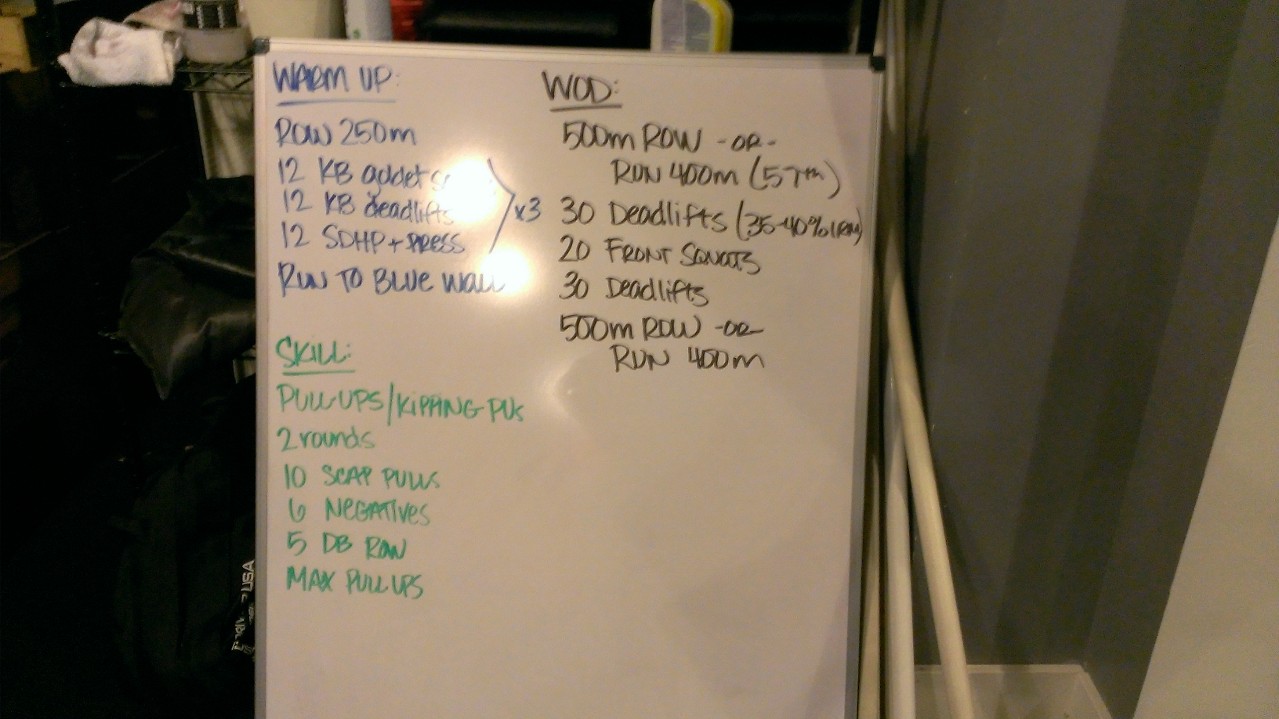 WARM UP:
ROW 250m
12 KB goblet
12 KB deadlifts
12 SDHP + PRESS
x3
RUN TO BLUE WALL
SKILL:
PULL-UPS/KIPPING PUs
2 rounds
10 SCAP PULLS
6 NEGATIVES
5 DB ROW
MAX PULL UPS
WOD:
500m ROW -OR-
RUN 400m (57th)
30 Deadlifts (35-40% 1RM)
20 FRONT SQUATS
30 Deadlifts
500m ROW -OR-
RUN 400m
USA